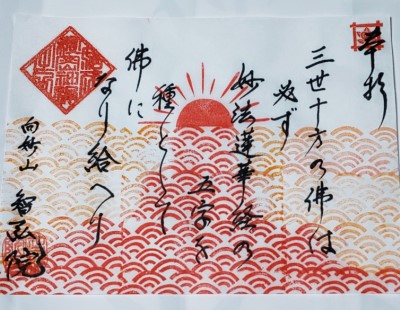 奉拝
三世十方の佛は
必ず
妙法蓮華経の
五字を
種として
佛に
なり給へり
向妙山
智玉院